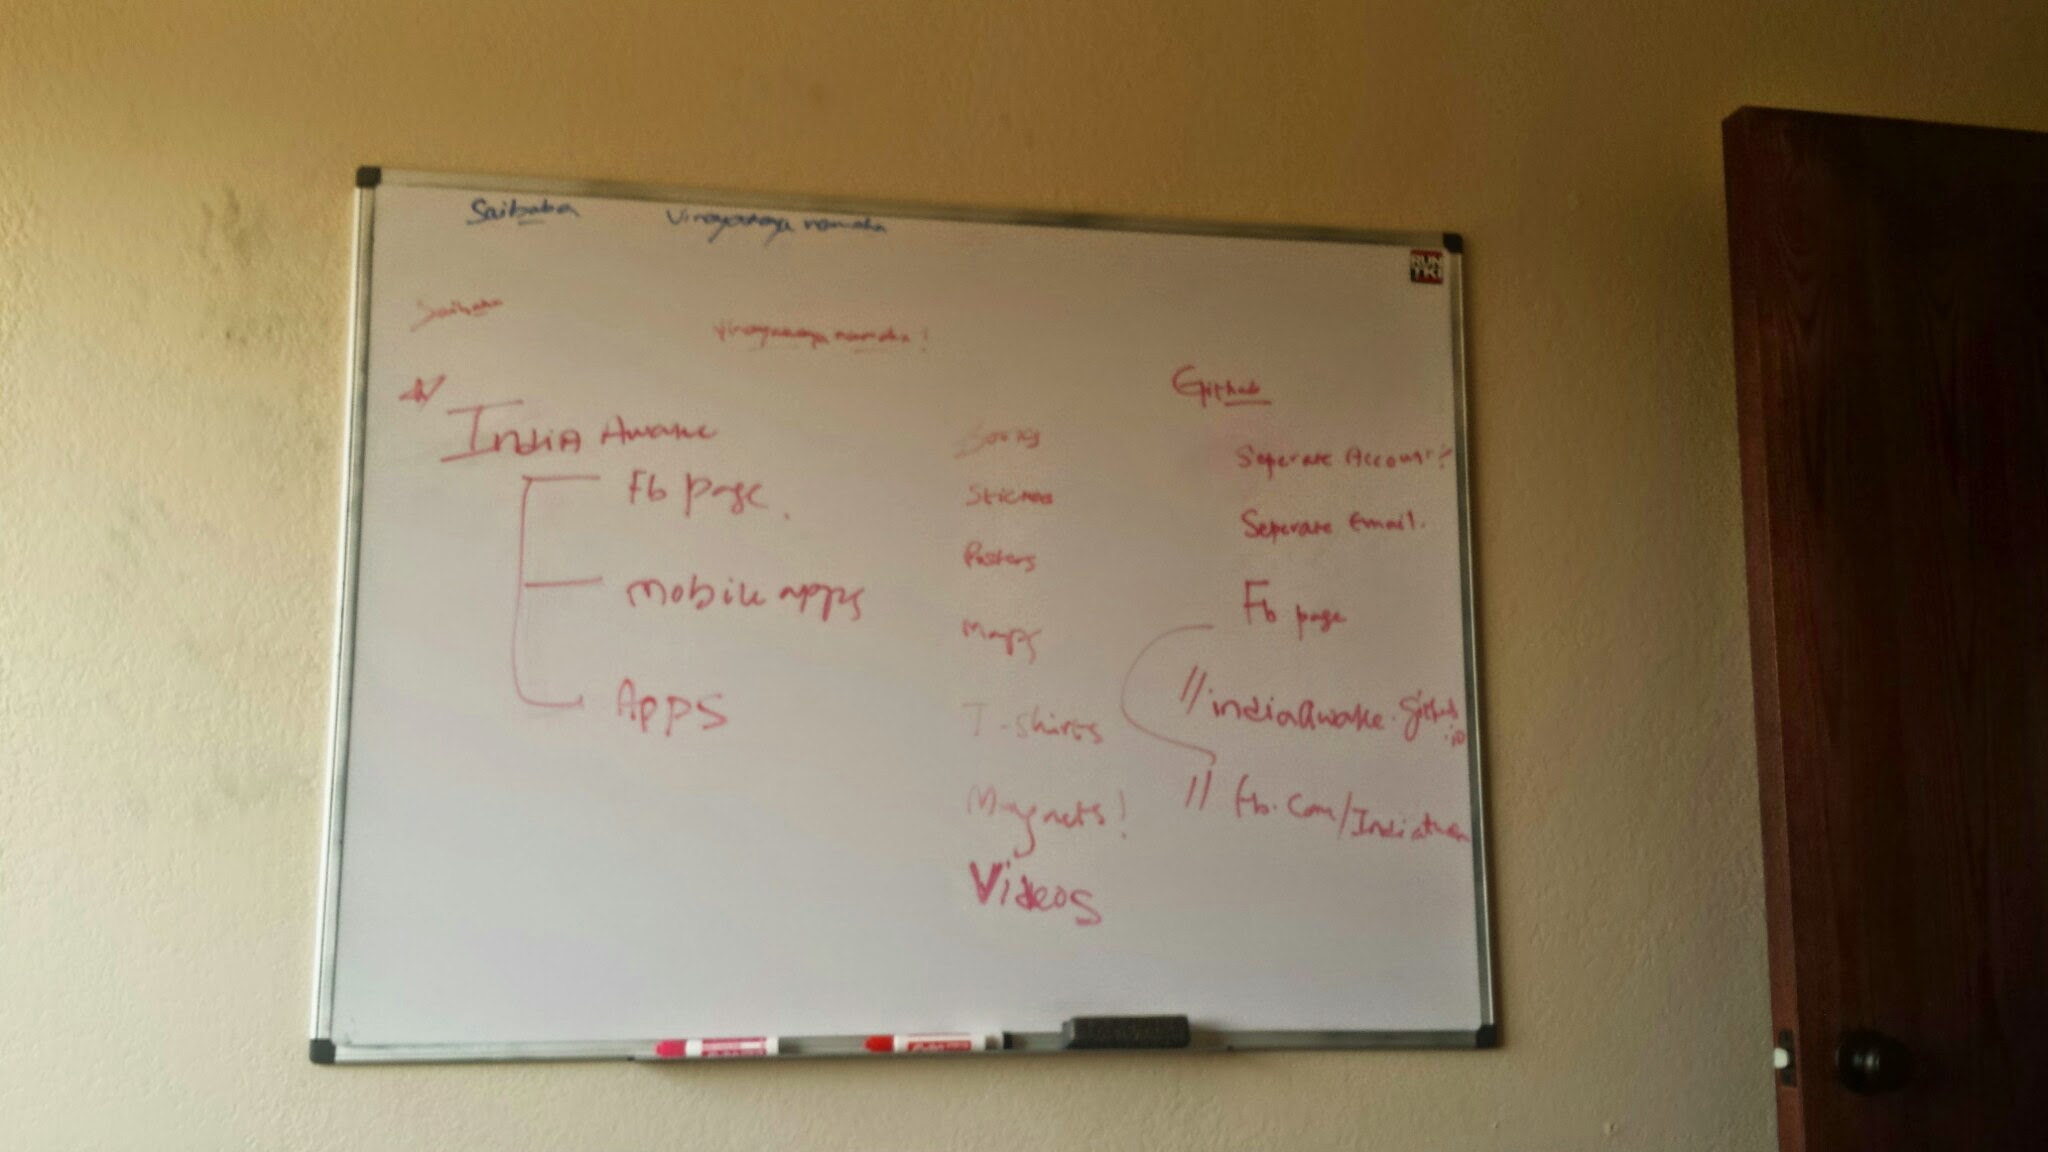 Saibaba Vinayakaya namaha
Saibaba
Vinayakaya namaha!
India Awake
Fb page.
Mobile apps
Apps
Books
Stickers
Posters
Maps
T-shirts
Magnets!
Videos
Github
Seperate Account!
Seperate Email.
Fb page
//indiaAwake.github.io
// fb.com/
RUN
TKI